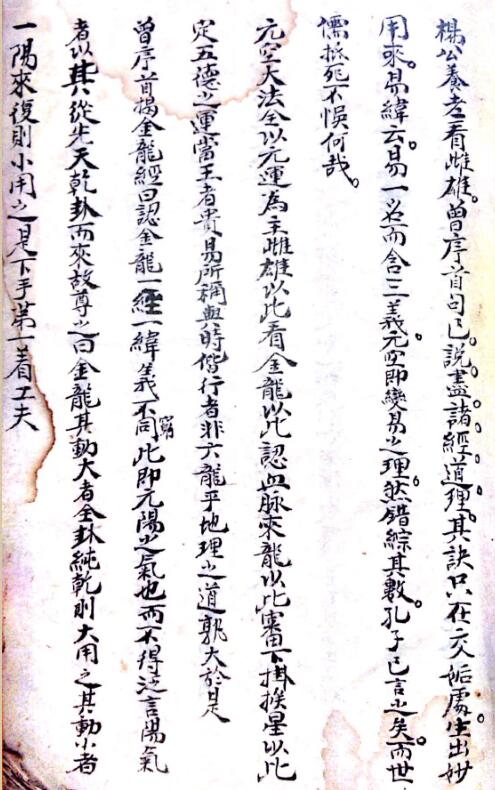 楊公養老看雌雄。曾序首句已說盡諸經道理。其訣只在交媾處。生出妙
用來。易緯云。易一名而含三義。元空即變易之理。然錯綜其數。孔子已言之矣。而世
儒抵死不悞何哉。
元空大法全以元運為主雌雄以此看金龍以此認血脉來龍以此審下掛挨星以此
定五德之運當王者貴易所稱與時偕行者非六龍乎地理之道孰大於是
曾序首揭金龍經曰認金龍一經一緯義不同窮此即元陽之氣也而不得泛言陽氣
者以其從先天乾卦而來故尊之曰金龍其動大者全卦純乾則大用之其動小者
一陽來復則小用之是下手第一着工夫